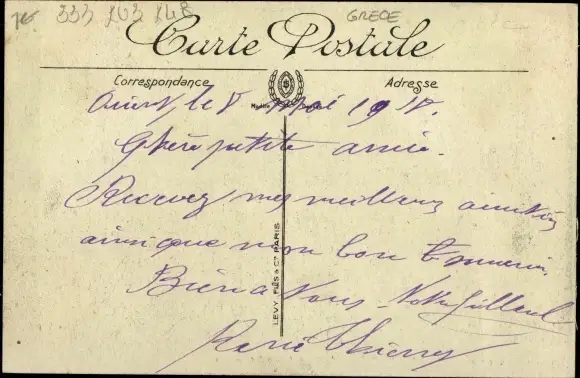 333 203 248
GRECE
Carte Postale
Correspondance
Adresse
le 8 Mai 1918.
Chère petite amie.
Recevez mes meilleurs amitiés
ainsi que mon bon souvenir.
Bien a Vous Votre filleul
René Thierry
LEVY FILS & Cie PARIS